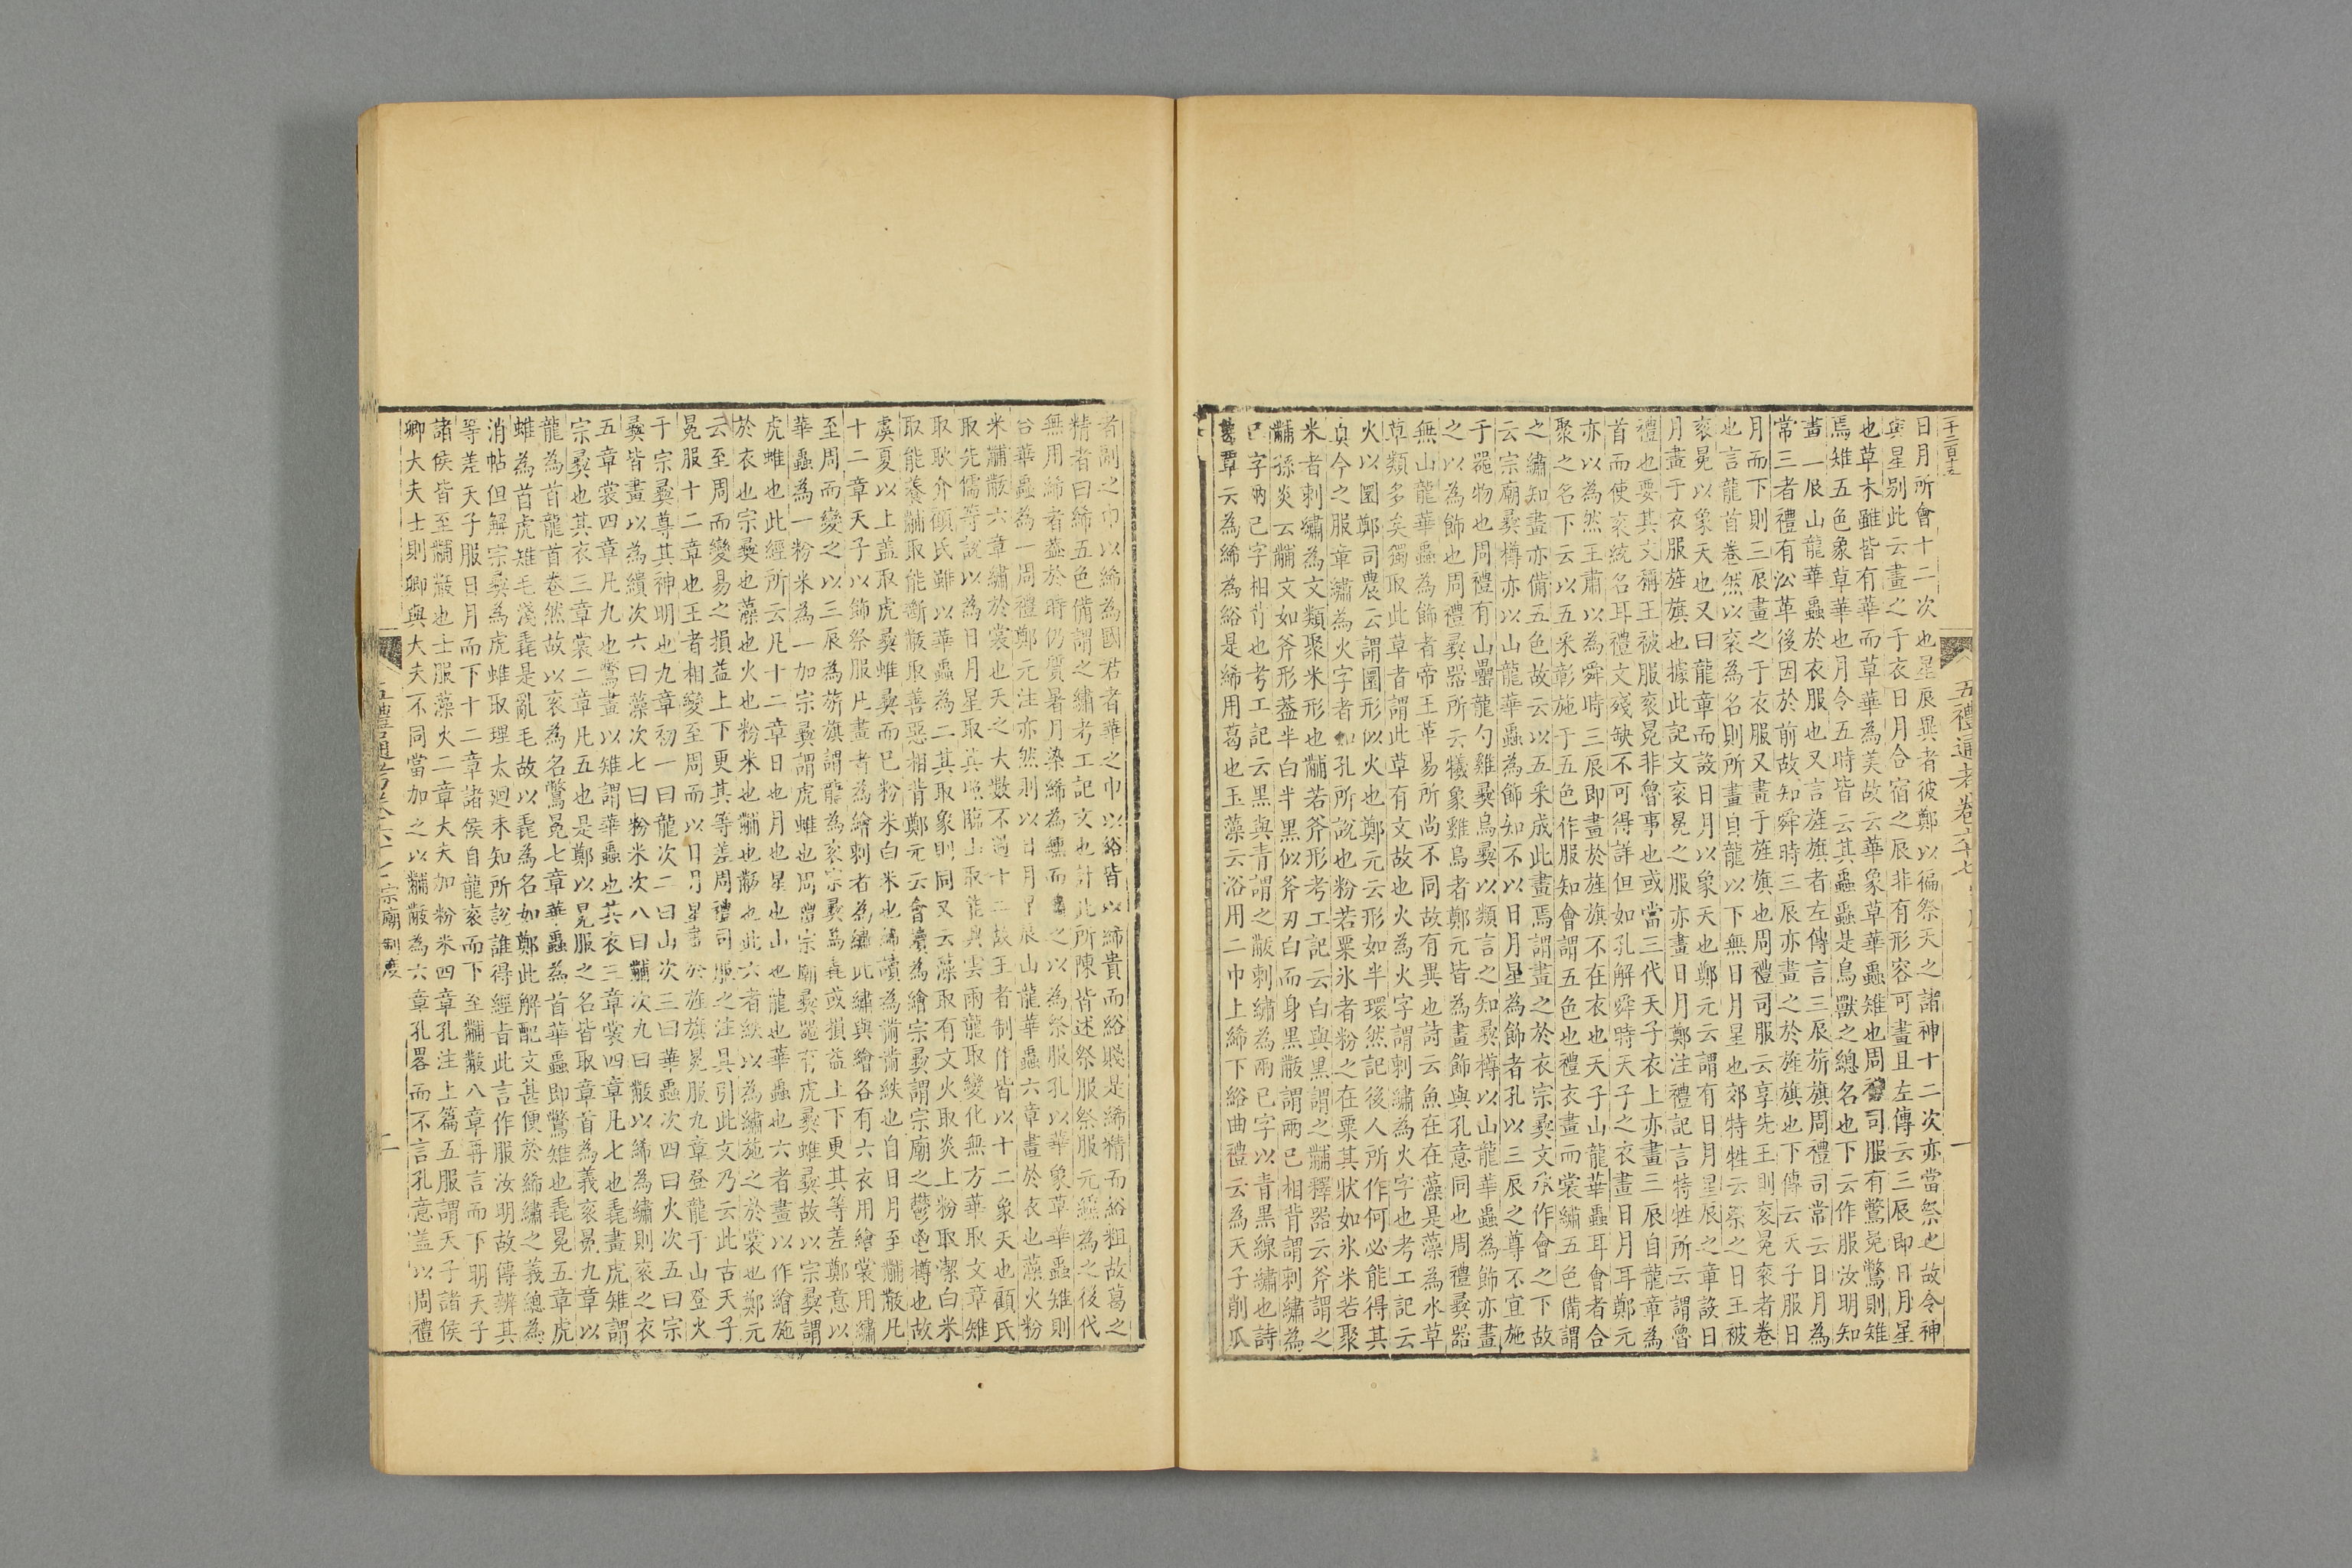 五禮通考卷六十七
日月所會十二次也星辰異者彼鄭以徧祭天之諸神十二次亦當祭之故令神
與星別此云畫之于衣日月合宿之辰非有形容可畫且左傳云三辰即日月星
也草木雖皆有華而草華為美故云華象草華蟲雉也周禮司服有鷩冕鷩則雉
焉雉五色象草華也月令五時皆云其蟲蟲是鳥獸之總名也下云作服汝明知
畫三辰山龍華蟲於衣服也又言旌旗者左傳言三辰旂旗周禮司常云日月為
常三者禮有㳂革後因於前故知舜時三辰亦畫之於旌旗也下傳云天子服日
月而下則三辰畫之于衣服又畫于旌旗也周禮司服云享先王則衮冕衮者卷
也言龍首卷然以衮為名則所畫自龍以下無日月星也郊特牲云祭之日王被
衮冕以象天也又曰龍章而設日月以象天也鄭元云謂有日月星辰之章設日
月畫于衣服旌旗也據此記文衮冕之服亦畫日月鄭注禮記言特牲所云謂魯
禮也要其文稱王被服衮冕非魯事也或當三代天子衣上亦畫三辰自龍章為
首而使衮統名耳禮文殘缺不可得詳但如孔解舜時天子之衣畫日月耳鄭元
亦以為然王肅以為舜時三辰即畫於旌旗不在衣也天子山龍華蟲耳會者合
聚之名下云以五采彰施于五色作服知會謂五色也禮衣畫而裳繡五色備謂
之繡知畫亦備五色故云以五采成此畫焉謂畫之於衣宗彝文承作會之下故
云宗廟彝樽亦以山龍華蟲為飾知不以日月星為飾者孔以三辰之尊不宜施
于器物也周禮有山罍龍勺雞彝鳥彝以類言之知彝樽以山龍華蟲為飾亦畫
之以為飾也周禮彝器所云犧象雞鳥者鄭元皆為畫飾與孔意同也周禮彝器
無山龍華蟲為飾者帝王革易所尚不同故有異也詩云魚在在藻是藻為水草
草類多矣獨取此草者謂此草有文故也火為火字謂刺繡為火字也考工記云
火以圜鄭司農云謂圜形似火也鄭元云形如半環然記後人所作何必能得其
真今之服章繡為火字者如孔所說也粉若粟氷者粉之在粟其狀如氷米若聚
米者刺繡為文類聚米形也黼若斧形考工記云白與黑謂之黼釋器云斧謂之
黼孫炎云黼文如斧形葢半白半黑似斧刃白而身黑黻謂兩己相背謂刺繡為
己字兩己字相背也考工記云黑與青謂之黻刺繡為兩己字以青黑線繡也詩
葛覃云為絺為綌是絺用葛也玉藻云浴用二巾上絺下綌曲禮云為天子削瓜
者副之巾以絺為國君者華之巾以綌皆以絺貴而綌賤是絺精而綌粗故葛之
精者曰絺五色備謂之繡考工記文也計此所陳皆述祭服祭服元纁為之後代
無用絺者葢於時仍質暑月染絺為纁而繡之以為祭服孔以華象草華蟲雉則
合華蟲為一周禮鄭元注亦然則以日月星辰山龍華蟲六章畫於衣也藻火粉
米黼黻六章繡於裳也天之大數不過十二故王者制作皆以十二象天也顧氏
取先儒等說以為日月星取其照臨山取能興雲雨龍取變化無方華取文章雉
取耿介顧氏雖以華蟲為二其取象則同又云藻取有文火取炎上粉取潔白米
取能養黼取能斷黻取善惡相背鄭元云會讀為繪宗彝謂宗廟之鬱鬯樽也故
虞夏以上葢取虎彝蜼彝而已粉米白米也絺讀為黹黹紩也自日月至黼黻凡
十二章天子以飾祭服凡畫者為繪刺者為繡此繡與繪各有六衣用繪裳用繡
至周而變之以三辰為旂旗謂龍為衮宗彝為毳或損益上下更其等差鄭意以
華蟲為一粉米為一加宗彝謂虎蜼也周禮宗廟彝器有虎彝蜼彝故以宗彝謂
虎蜼也此經所云凡十二章日也月也星也山也龍也華蟲也六者畫以作繪施
於衣也宗彝也藻也火也粉米也黼也黻也此六者紩以為繡施之於裳也鄭元
云至周而變易之損益上下更其等差周禮司服之注具引此文乃云此古天子
冕服十二章也王者相變至周而以日月星畫於旌旗冕服九章登龍于山登火
于宗彝尊其神明也九章初一曰龍次二曰山次三曰華蟲次四曰火次五曰宗
彝皆畫以為繢次六曰藻次七曰粉米次八曰黼次九曰黻以絺為繡則衮之衣
五章裳四章凡九也鷩畫以雉謂華蟲也其衣三章裳四章凡七也毳畫虎雉謂
宗彝也其衣三章裳二章凡五也是鄭以冕服之名皆取章首為義衮冕九章以
龍為首龍首卷然故以衮為名鷩冕七章華蟲為首華蟲即鷩雉也毳冕五章虎
蜼為首虎雉毛淺毳是亂毛故以毳為名如鄭此解配文甚便於絺繡之義總為
消帖但解宗彝為虎蜼取理太迴未知所說誰得經旨此言作服汝明故傳辨其
等差天子服日月而下十二章諸侯自龍衮而下至黼黻八章再言而下明天子
諸侯皆至黼黻也士服藻火二章大夫加粉米四章孔注上篇五服謂天子諸侯
卿大夫士則卿與大夫不同當加之以黼黻為六章孔畧而不言孔意葢以周禮
五禮通考卷六十七 宗廟制度
二